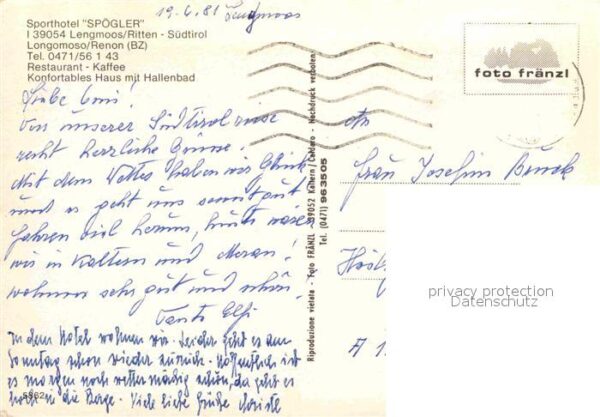 19.6.81 Lengmoos
Sporthotel "SPÖGLER"
I 39054 Lengmoos/Ritten - Südtirol
Longomoso/Renon (BZ)
Tel. 0471/56 1 43
Restaurant - Kaffee
Konfortables Haus mit Hallenbad
Liebe Omi!
Von unserer Südtirolreise
recht herzliche Grüsse.
Mit dem Wetter haben wir Glück
und es geht uns somit gut!
Fahren viel herum, heute waren
wir in Kaltern und Meran!
wohnen sehr gut und schön!
Tante Elfi
In dem Hotel wohnen wir. Leider geht es am
Sonntag schon wieder zurück. Hoffentlich ist
es morgen noch wettermäßig schön, da geht es
in die Berge. Viele liebe Grüße Christl
5862
Riproduzione vietata - Foto FRÄNZL - 39052 Kaltern / Caldaro - Nachdruck verboten
Tel. (0471) 963505
foto fränzl
An
Frau Josefin Bruck
A 1
privacy protection
Datenschutz